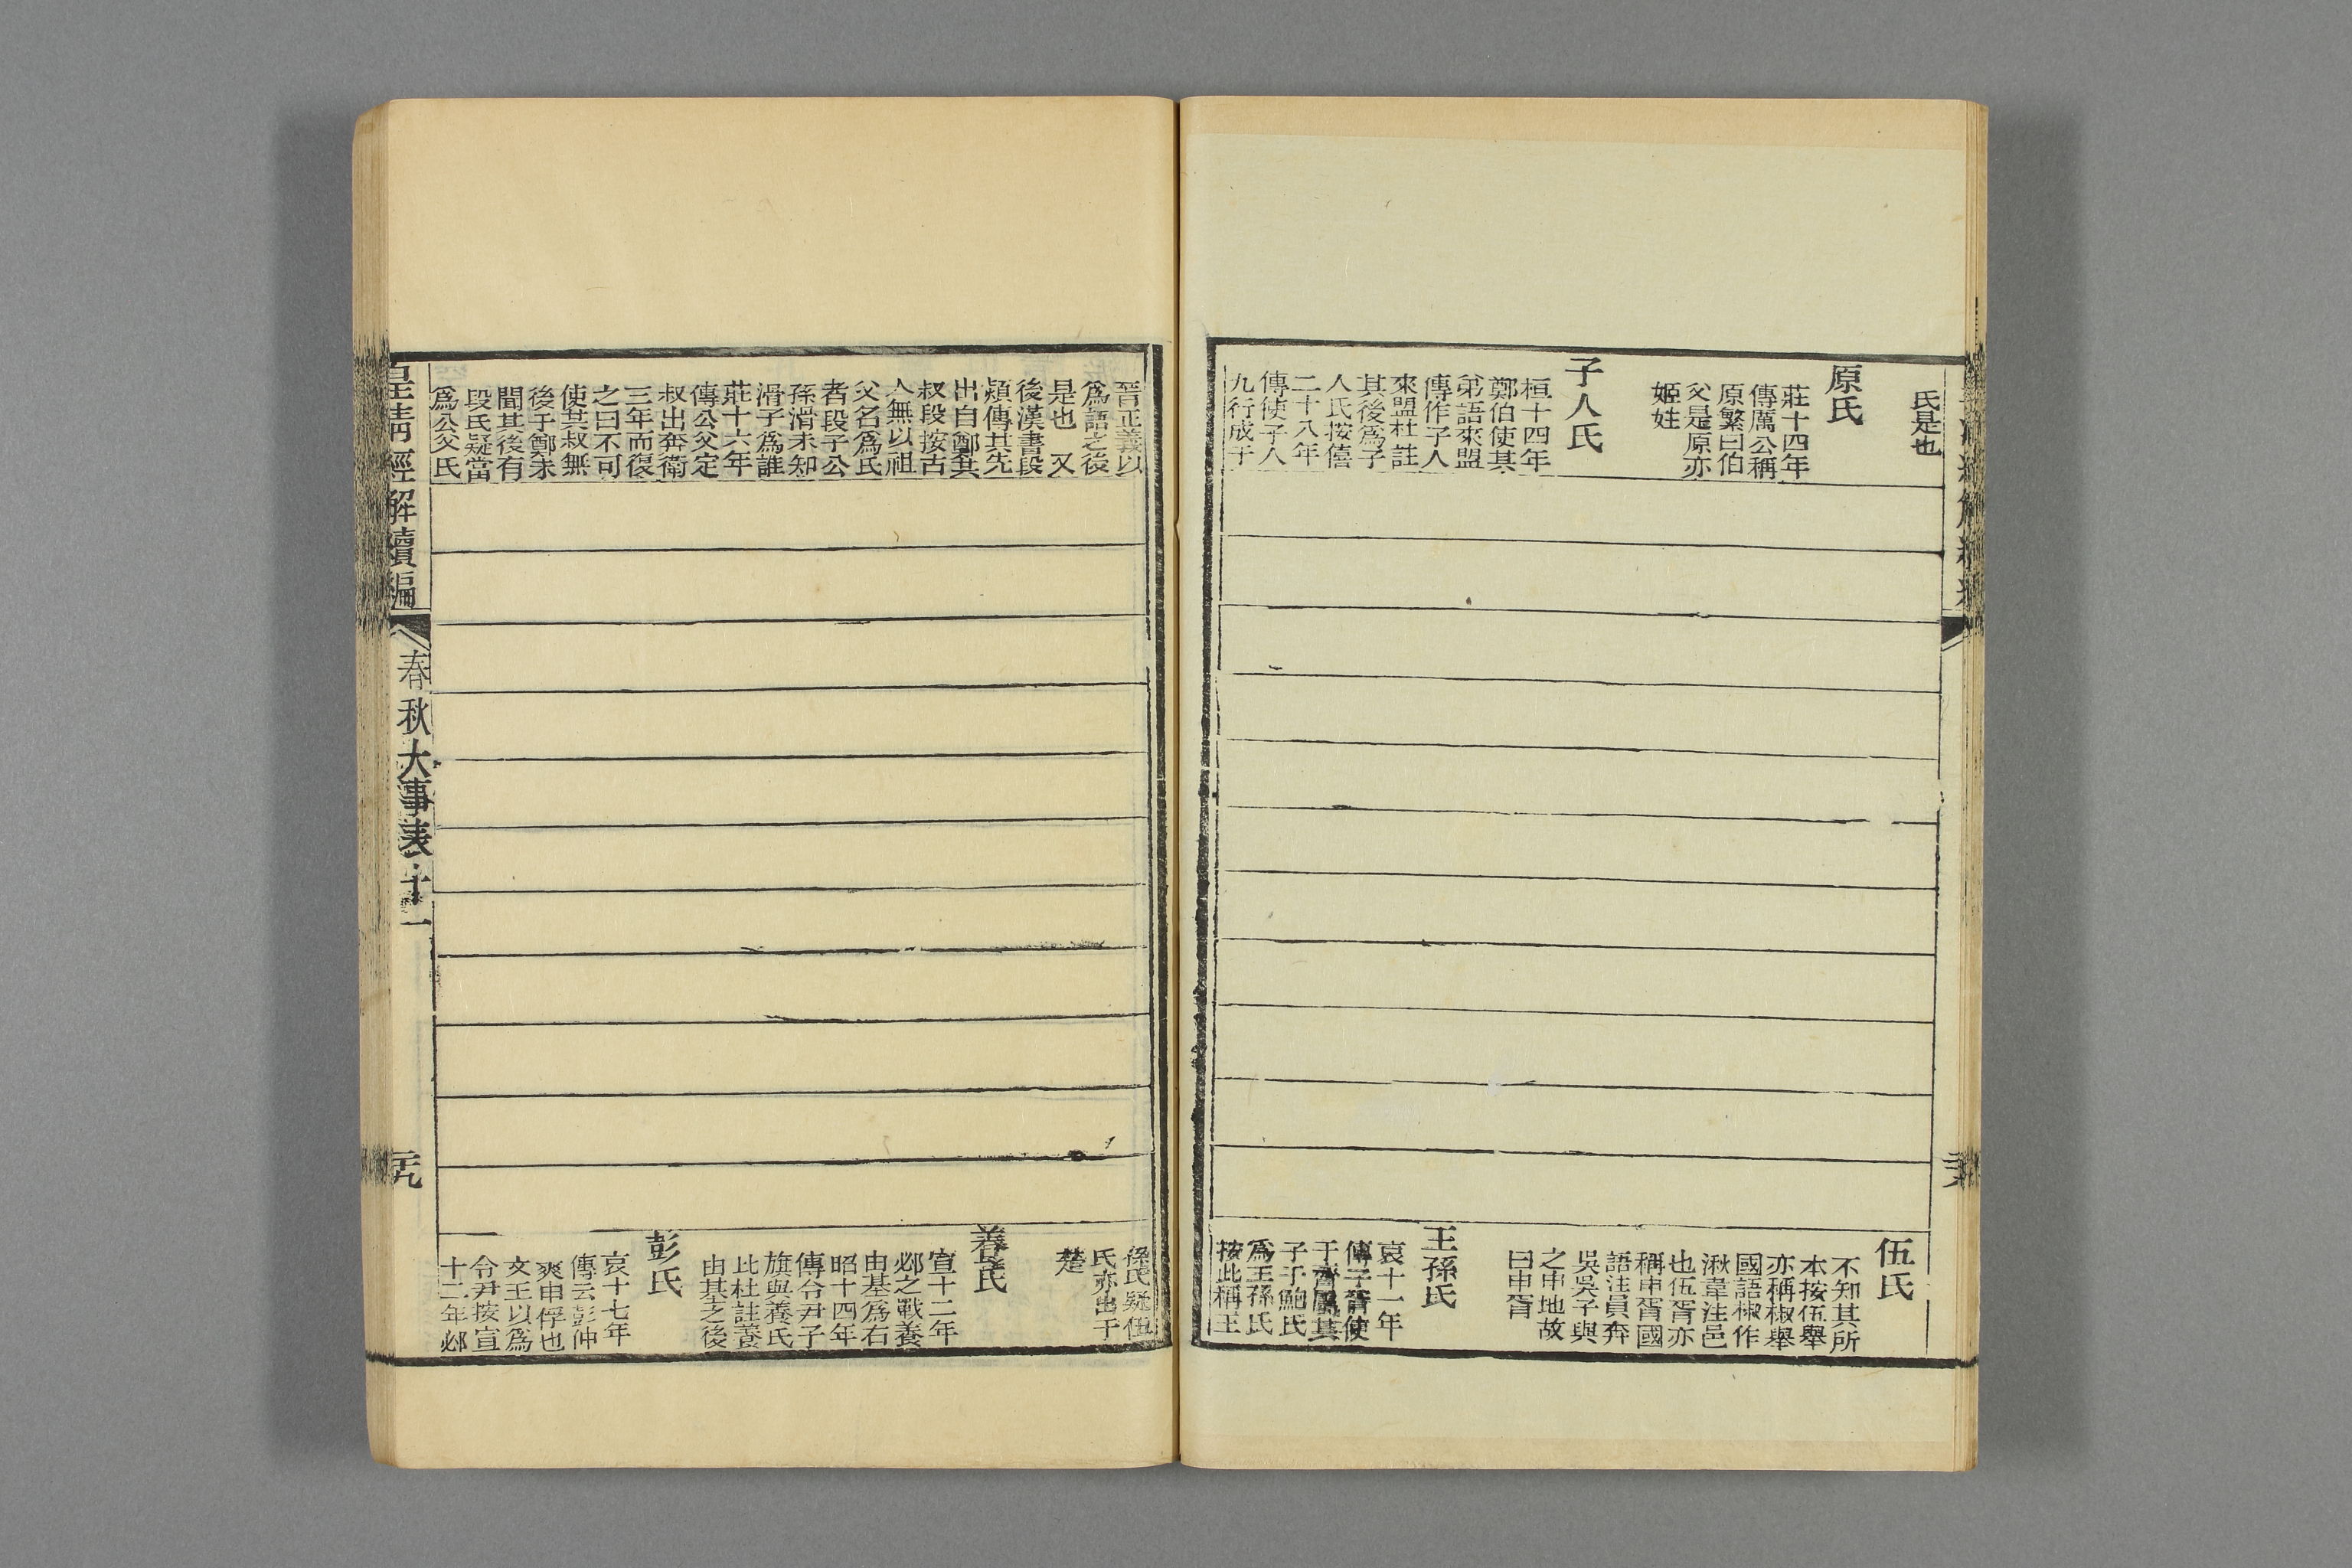 氏是也
原氏
莊十四年
傳厲公稱
原繁曰伯
父是原亦
姬姓
子人氏
桓十四年
鄭伯使其
弟語來盟
傳作子人
來盟杜註
其後爲子
人氏按僖
二十八年
傳使子人
九行成于
伍氏
不知其所
本按伍舉
亦稱椒舉
國語椒作
湫韋注邑
也伍胥亦
稱申胥國
語注員奔
吳吳子與
之申地故
曰申胥
王孫氏
哀十一年
傳子胥使
于齊屬其
子于鮑氏
爲王孫氏
按此稱王
晉正義以
爲語之後
是也 又
後漢書段
熲傳其先
出自鄭共
叔段按古
人無以祖
父名爲氏
者段子公
孫滑未知
滑子爲誰
莊十六年
傳公父定
叔出奔衛
三年而復
之曰不可
使共叔無
後于鄭未
聞其後有
段氏疑當
爲公父氏
孫氏疑伍
氏亦出于
楚
養氏
宣十二年
邲之戰養
由基爲右
昭十四年
傳令尹子
旗與養氏
比杜註養
由基之後
彭氏
哀十七年
傳云彭仲
爽申俘也
文王以爲
令尹按宣
十二年邲
皇清經解續編
春秋大事表十一